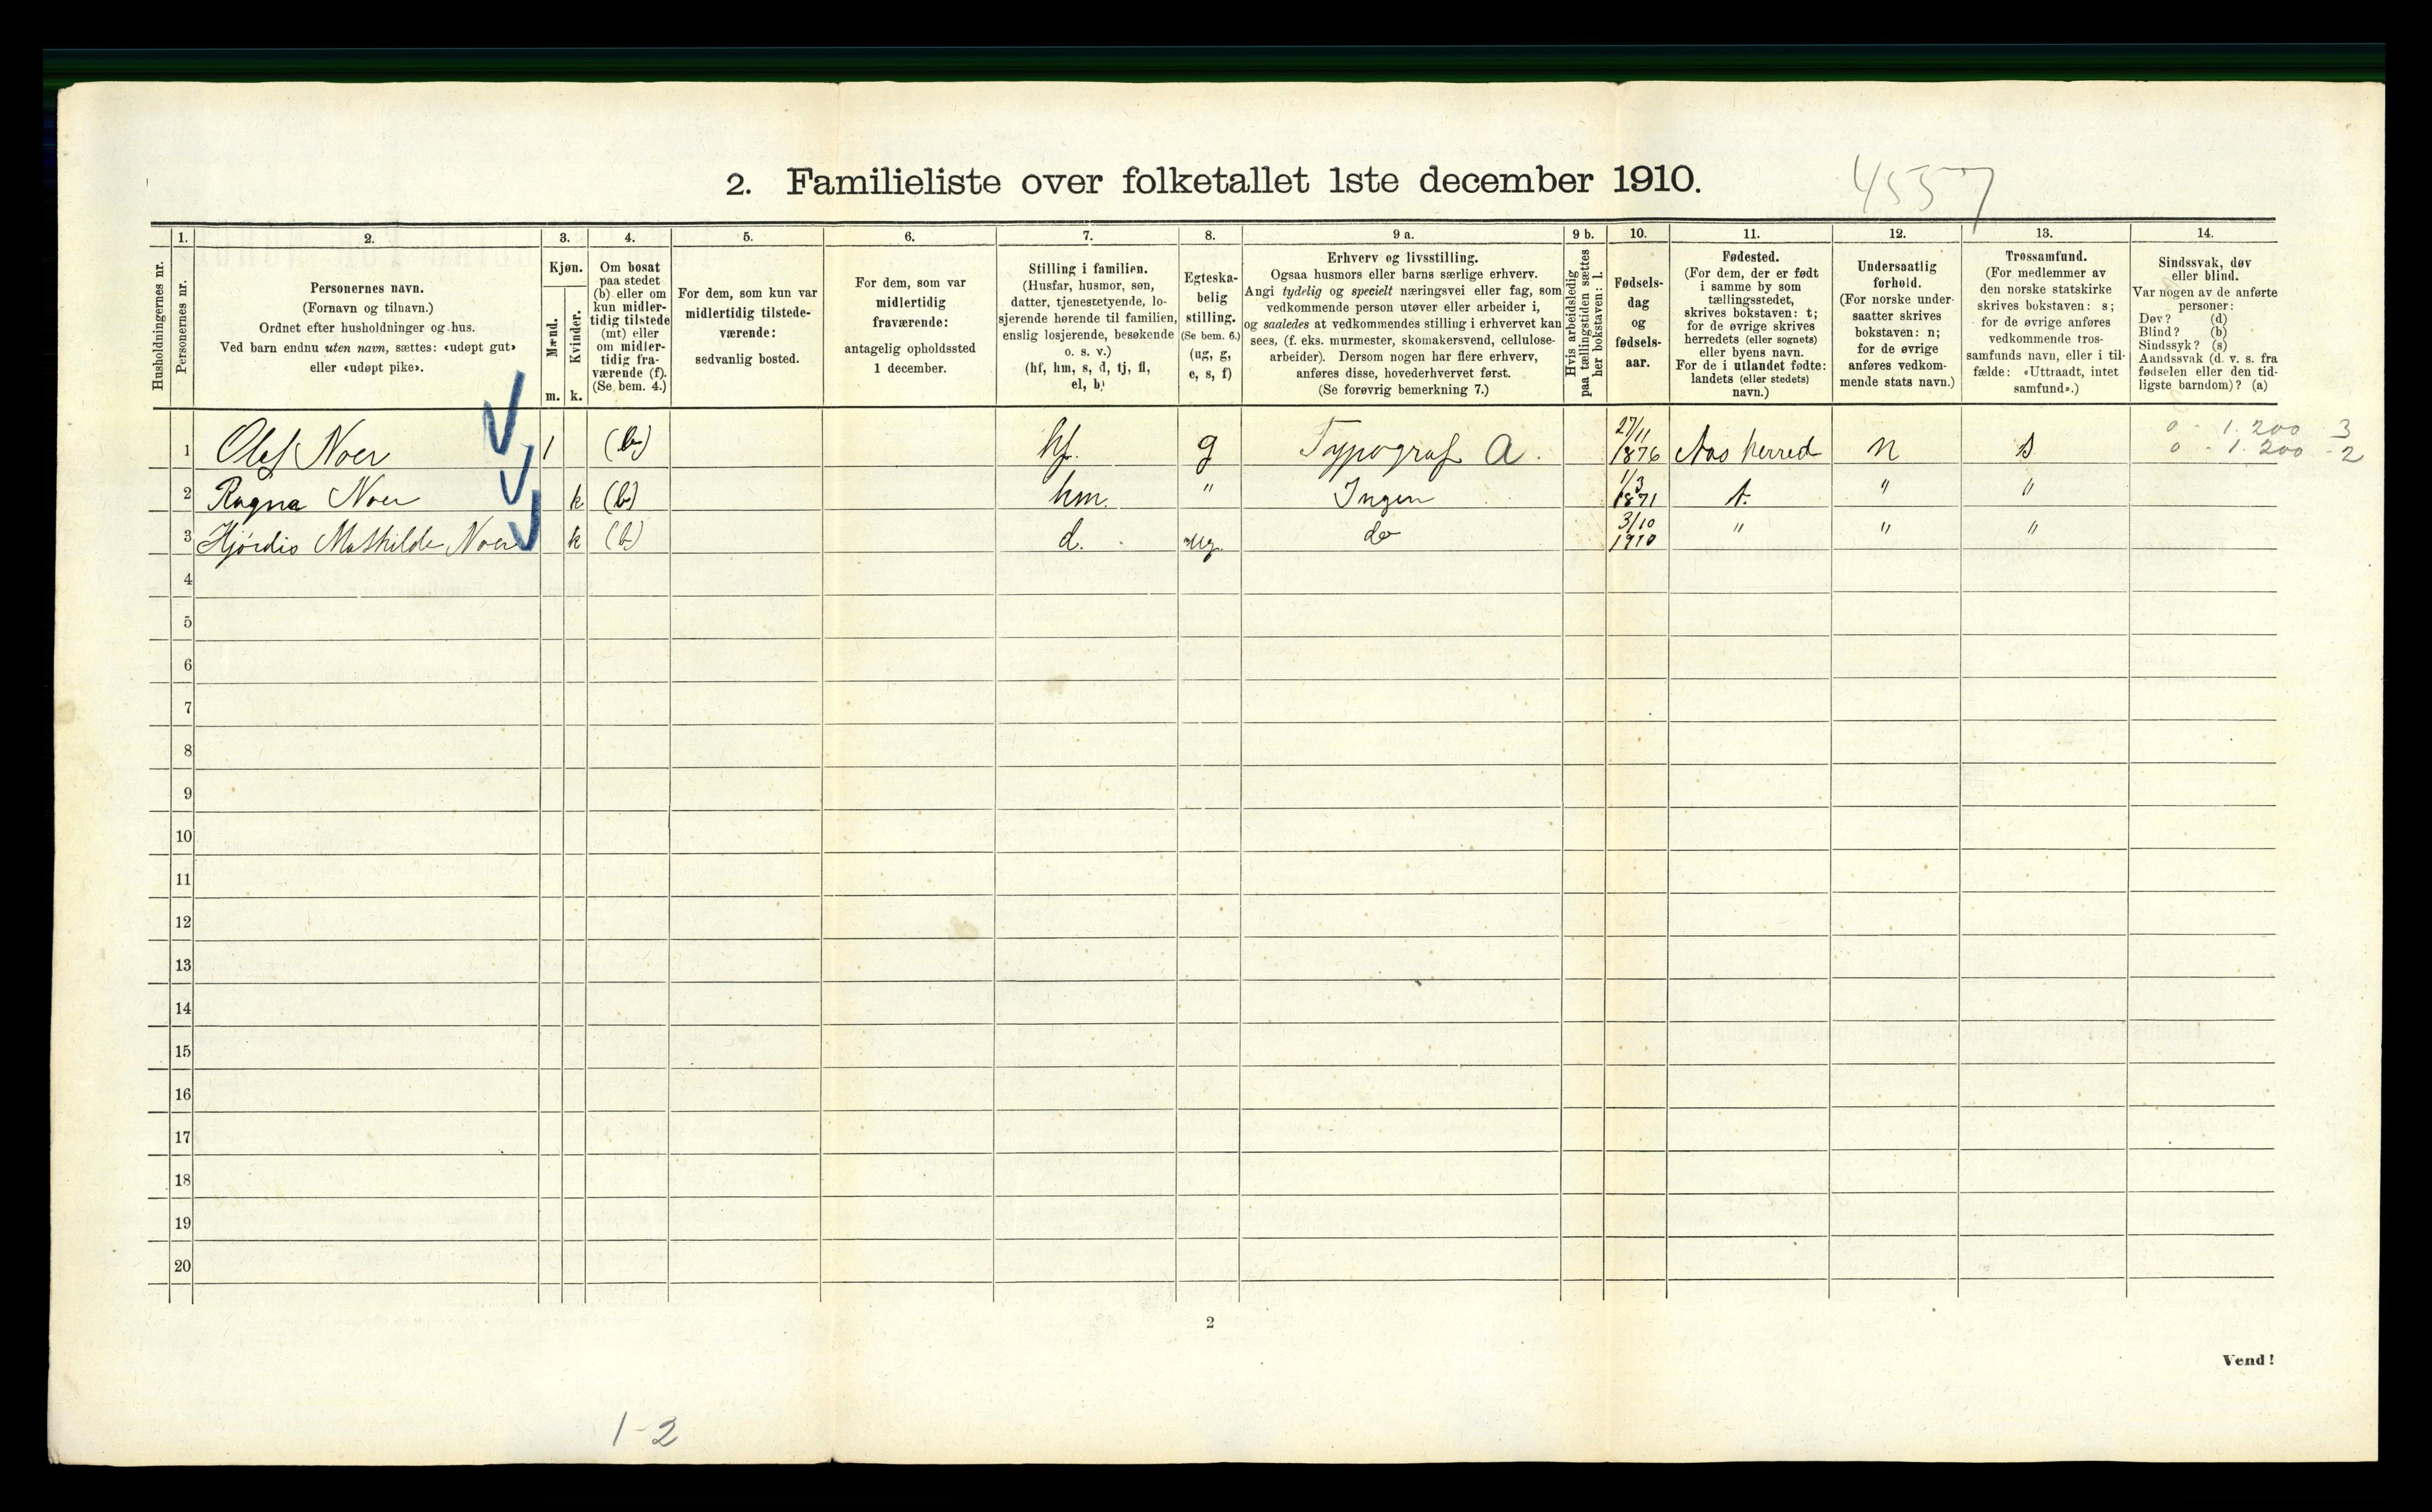 2. Familieliste over folketallet 1ste december 1910.
4557
Husholdningernes nr.
1.
Personernes nr.
2.
Personernes navn.
(Fornavn og tilnavn.)
Ordnet efter husholdninger og hus.
Ved barn endnu uten navn, sættes: «udøpt gut»
eller «udøpt pike».
3.
Kjøn.
Mænd.
Kvinder.
m. k.
4.
Om bosat
paa stedet
(b) eller om
kun midler-
tidig tilstede
(mt) eller
om midler-
tidig fra-
værende (f).
(Se bem. 4.)
5.
For dem, som kun var
midlertidig tilstede-
værende:
sedvanlig bosted.
6.
For dem, som var
midlertidig
fraværende:
antagelig opholdssted
1 december.
7.
Stilling i familien.
(Husfar, husmor, søn,
datter, tjenestetyende, lo-
sjerende hørende til familien,
enslig losjerende, besøkende
o. s. v.)
(hf, hm, s, d, tj, fl,
el, b)
8.
Egteska-
belig
stilling.
(Se bem. 6.)
(ug, g,
e, s, f)
9 a.
Erhverv og livsstilling.
Ogsaa husmors eller barns særlige erhverv.
Angi tydelig og specielt næringsvei eller fag, som
vedkommende person utøver eller arbeider i,
og saaledes at vedkommendes stilling i erhvervet kan
sees, (f. eks. murmester, skomakersvend, cellulose-
arbeider). Dersom nogen har flere erhverv,
anføres disse, hovederhvervet først.
(Se forøvrig bemerkning 7.)
9 b.
Hvis arbeidsledig
paa tællingstiden sættes
her bokstaven: l.
10.
Fødsels-
dag
og
fødsels-
aar.
11.
Fødested.
(For dem, der er født
i samme by som
tællingsstedet,
skrives bokstaven: t;
for de øvrige skrives
herredets (eller sognets)
eller byens navn.
For de i utlandet fødte:
landets (eller stedets)
navn.)
12.
Undersaatlig
forhold.
(For norske under-
saatter skrives
bokstaven: n;
for de øvrige
anføres vedkom-
mende stats navn.)
13.
Trossamfund.
(For medlemmer av
den norske statskirke
skrives bokstaven: s;
for de øvrige anføres
vedkommende tros-
samfunds navn, eller i til-
fælde: «Uttraadt, intet
samfund».)
14.
Sindssvak, døv
eller blind.
Var nogen av de anførte
personer:
Døv? (d)
Blind? (b)
Sindssyk? (s)
Aandssvak (d. v. s. fra
fødselen eller den tid-
ligste barndom)? (a)
1 Olef Noer 1 (b) hf. g Typograf A. 27/11 1876 Aas herred n s
0 - 1.200 3
0 - 1.200 - 2
2 Ragna Noer k (b) hm. " Ingen 1/3 1871 t. " "
3 Hjördis Mathilde Noer k (b) d. ug. do 3/10 1910 " " "
4
5
6
7
8
9
10
11
12
13
14
15
16
17
18
19
20
2
Vend!
1-2